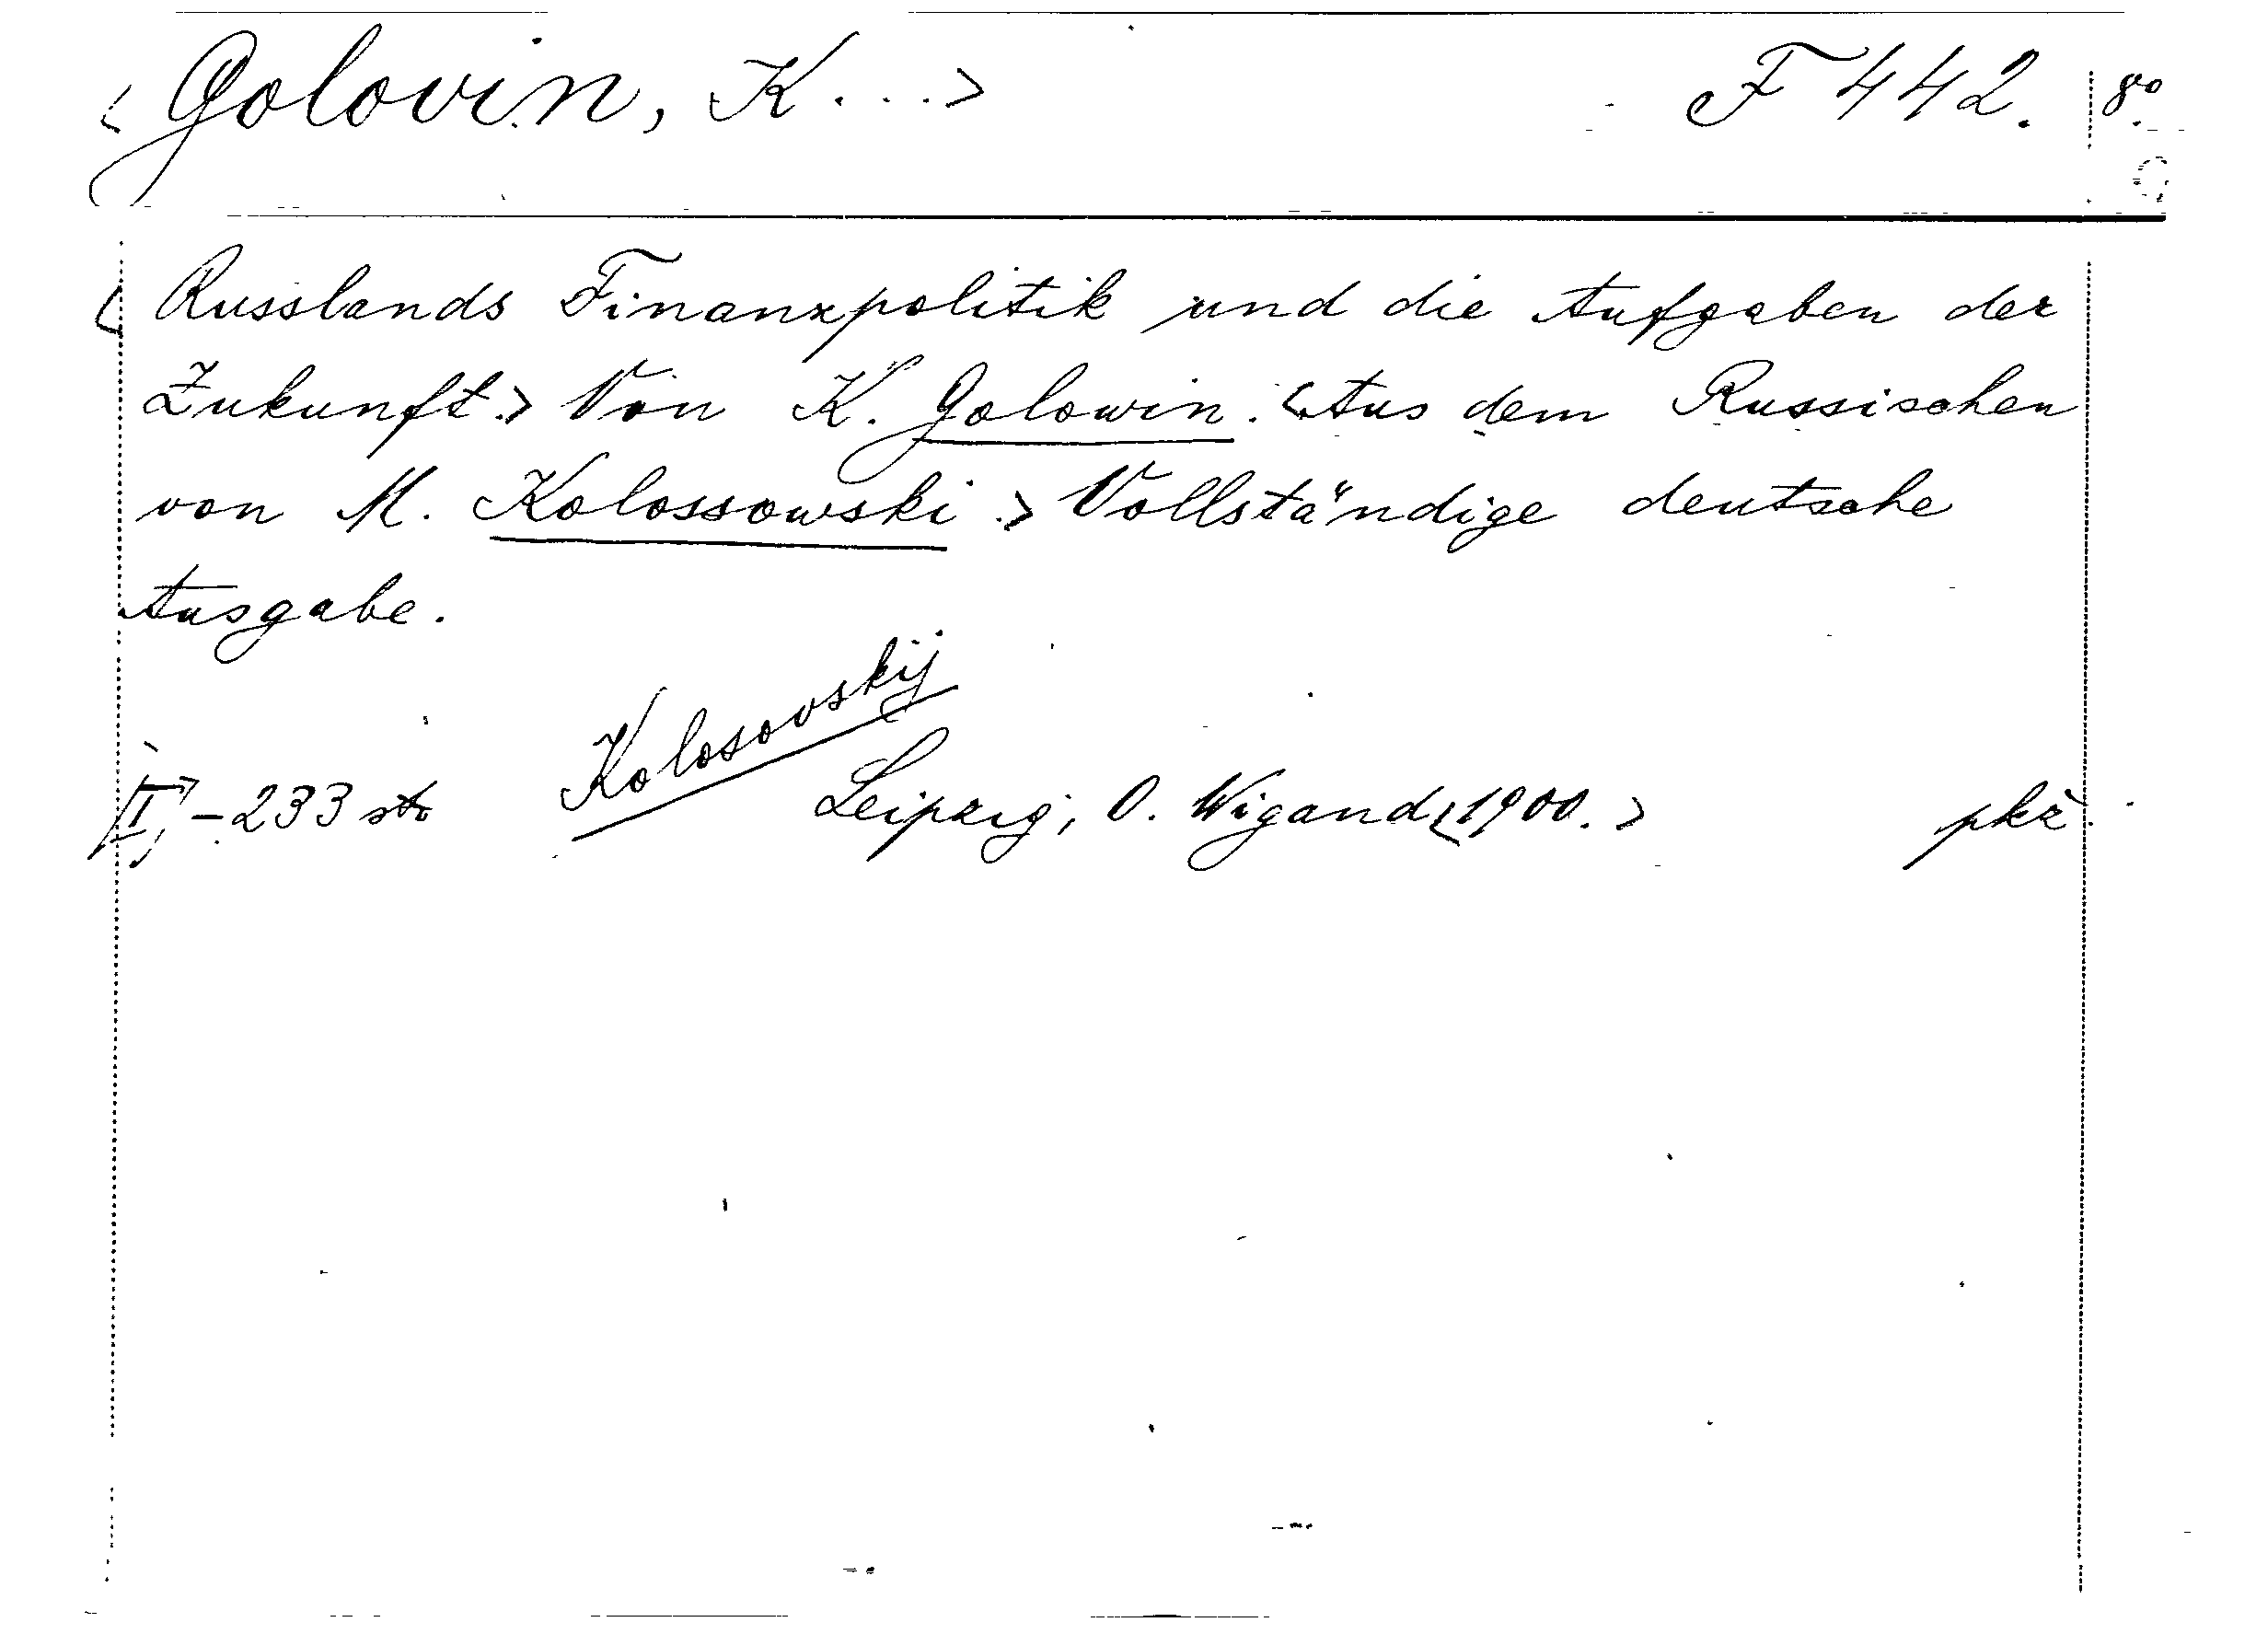 <Golovin, K...> F 442. 8°.
<Russlands Finanzpolitik und die Aufgaben der
Zukunft.> Von K. Golowin. <Aus dem Russischen
von M. Kolossowski.> Vollständige deutsche
Ausgabe.
Kolosovskij
-233 str Leipzig, O. Wigand <1900.> pkž.